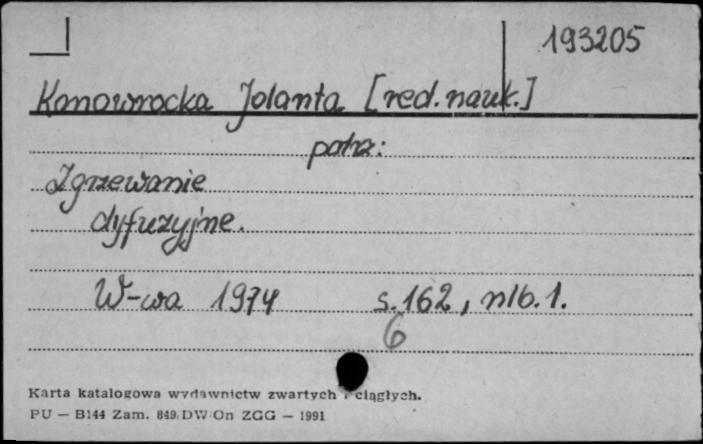 193205
Konowrocka Jolanta [red. nauk.]
patrz:
Zgrzewanie
dyfuzyjne.
W-wa 1974 s. 162, nlb. 1.
6
Karta katalogowa wydawnictw zwartych i ciągłych.
PU — B144 Zam. 849/DW/On ZGG — 1991